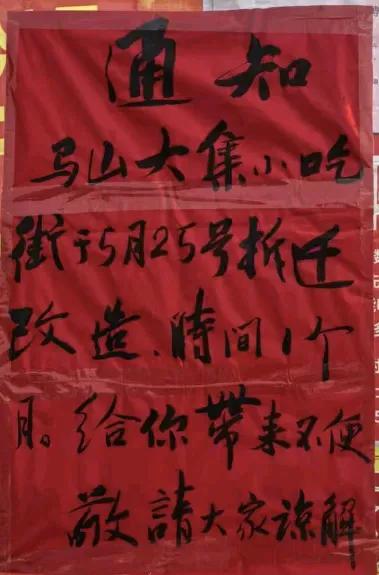 通知
马山大集小吃
街于5月25号拆迁
改造、時间1个
月。给你帶来不便
敬請大家諒解